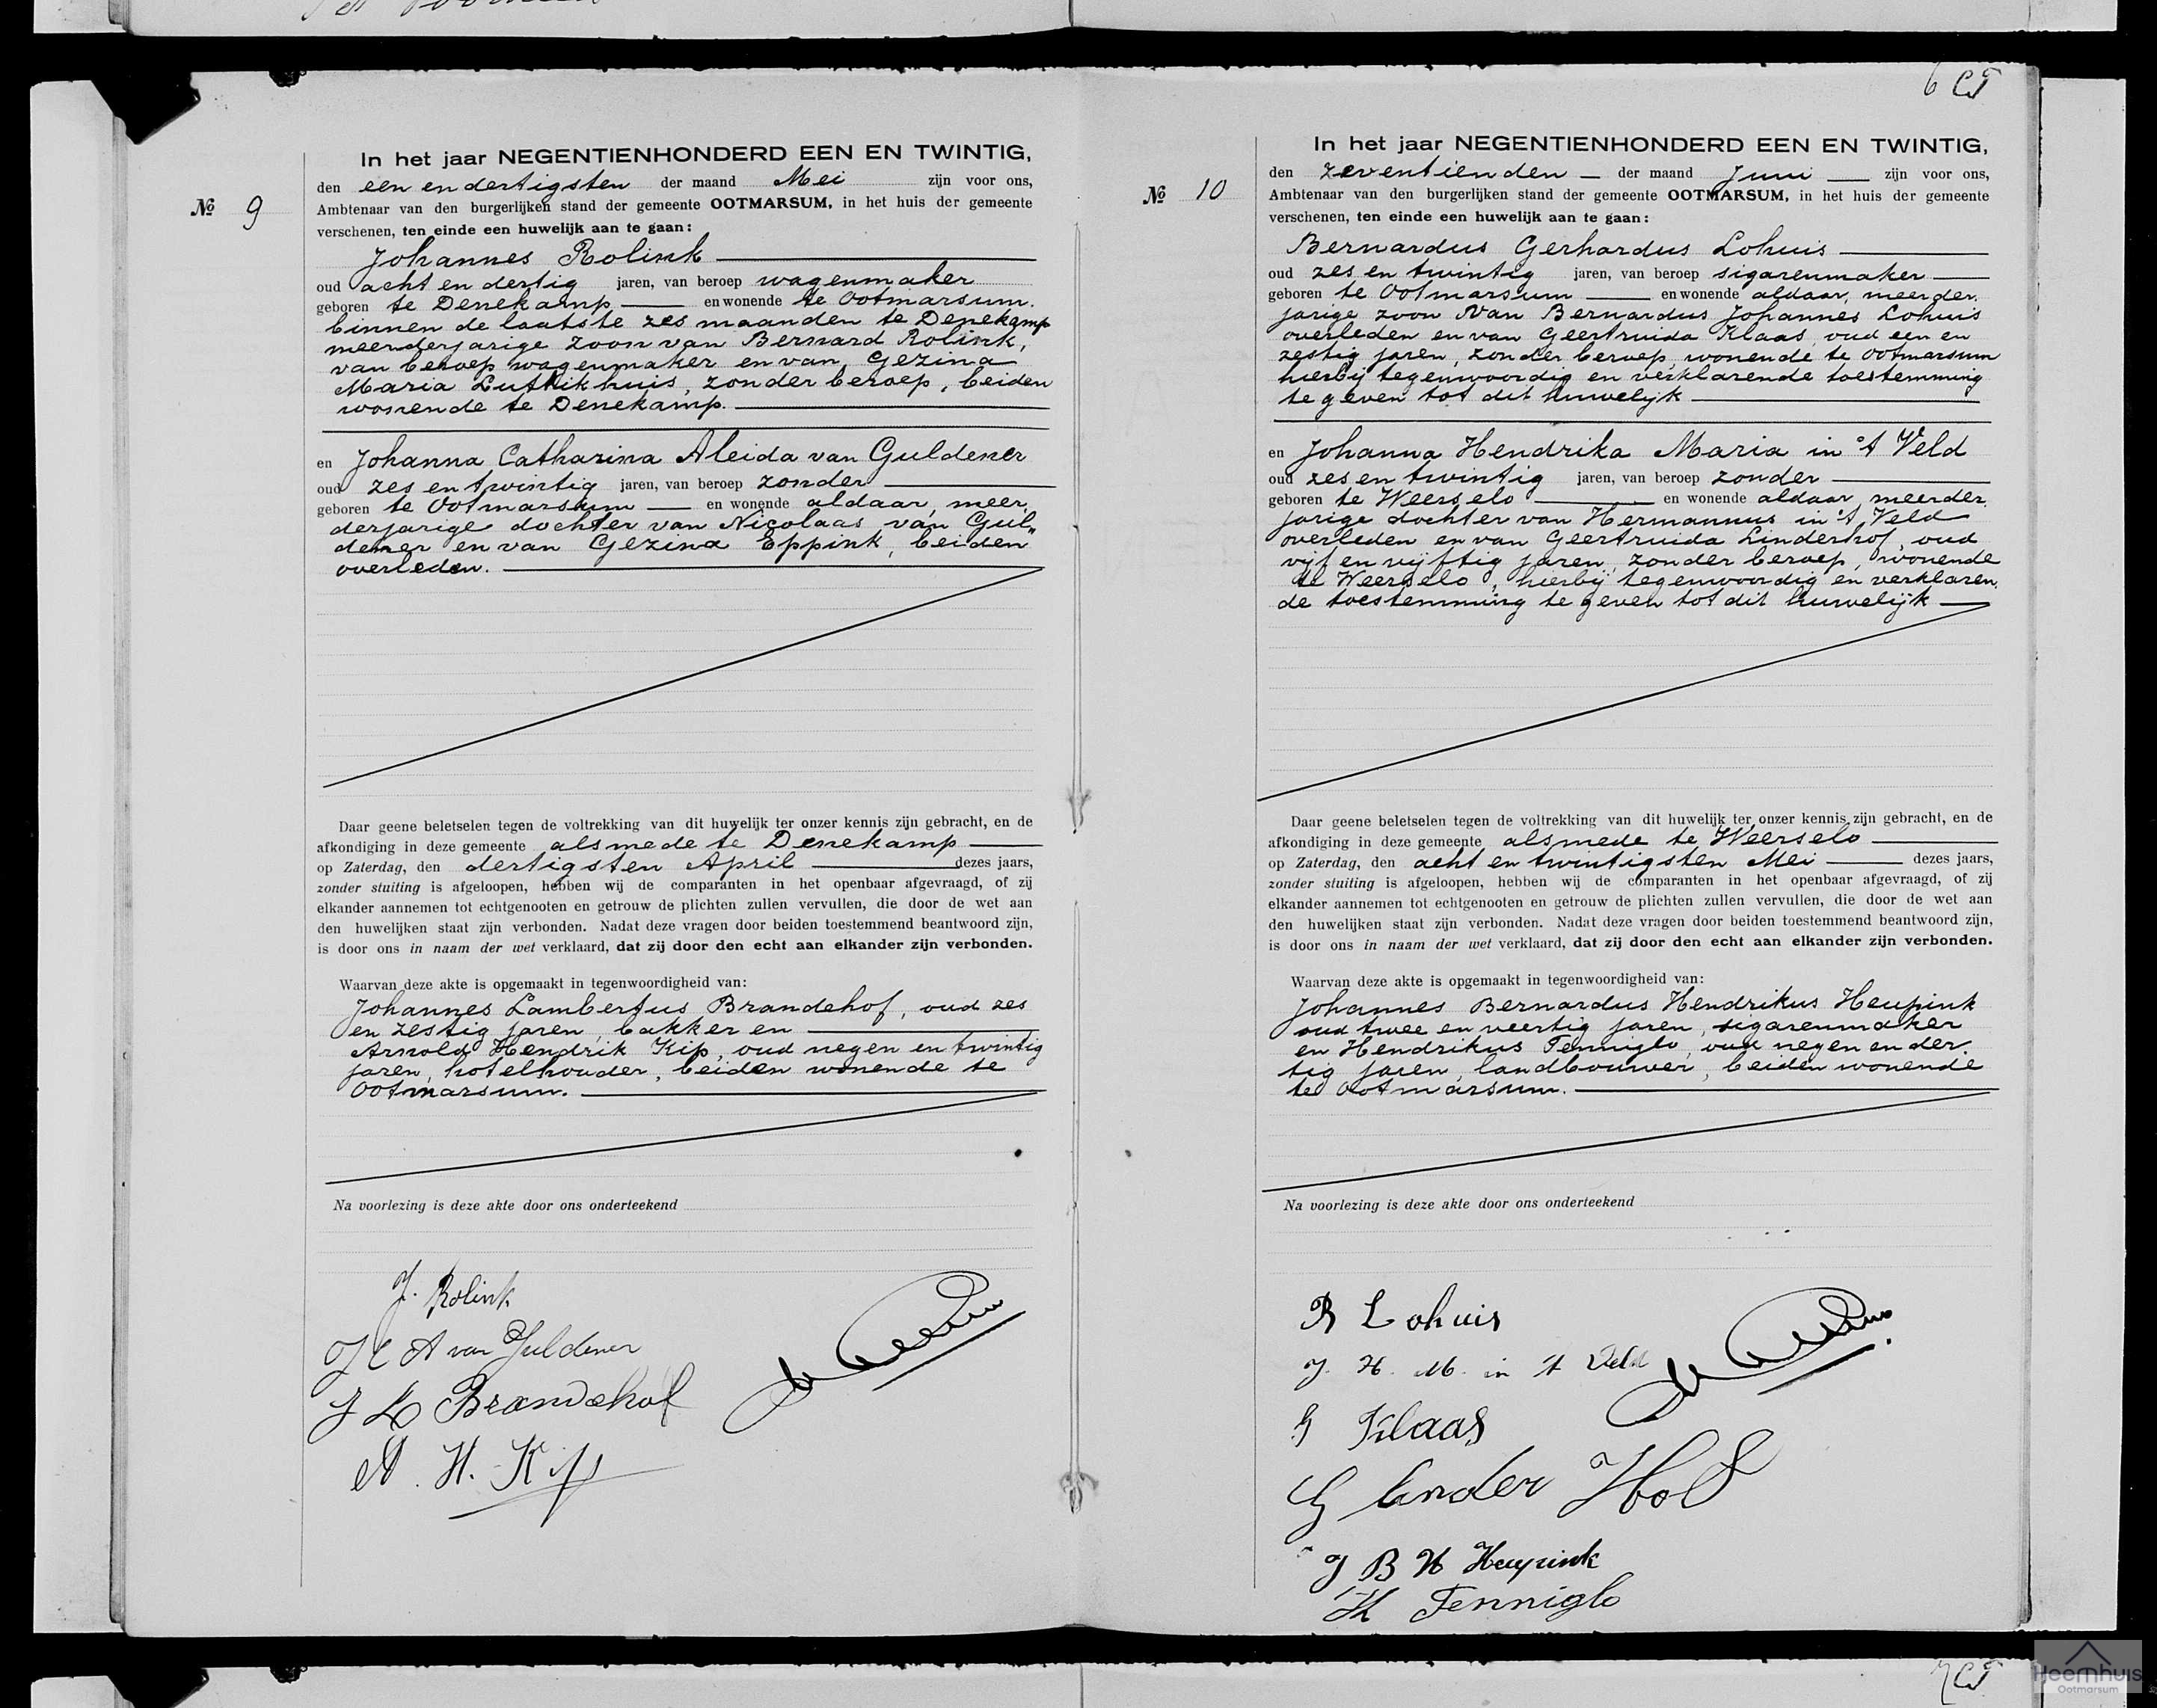 6
In het jaar NEGENTIENHONDERD EEN EN TWINTIG,
den een en dertigsten der maand Mei zijn voor ons,
№ 9
Ambtenaar van den burgerlijken stand der gemeente OOTMARSUM, in het huis der gemeente
verschenen, ten einde een huwelijk aan te gaan:
Johannes Rolink
oud acht en dertig jaren, van beroep wagenmaker
geboren te Denekamp en wonende te Ootmarsum.
binnen de laatste zes maanden te Denekamp
meerderjarige zoon van Bernard Rolink,
van beroep wagenmaker en van Gezina
Maria Luttikhuis, zonder beroep, beiden
wonende te Denekamp.
en Johanna Catharina Aleida van Guldener
oud zes en twintig jaren, van beroep zonder
geboren te Ootmarsum en wonende aldaar, meer
derjarige dochter van Nicolaas van Gul„
dener en van Gezina Eppink, beiden
overleden.
Daar geene beletselen tegen de voltrekking van dit huwelijk ter onzer kennis zijn gebracht, en de
afkondiging in deze gemeente alsmede te Denekamp
op Zaterdag, den dertigsten April dezes jaars,
zonder stuiting is afgeloopen, hebben wij de comparanten in het openbaar afgevraagd, of zij
elkander aannemen tot echtgenooten en getrouw de plichten zullen vervullen, die door de wet aan
den huwelijken staat zijn verbonden. Nadat deze vragen door beiden toestemmend beantwoord zijn,
is door ons in naam der wet verklaard, dat zij door den echt aan elkander zijn verbonden.
Waarvan deze akte is opgemaakt in tegenwoordigheid van:
Johannes Lambertus Brandehof, oud zes
en zestig jaren, bakker en
Arnold Hendrik Kip, oud negen en twintig
jaren, hotelhouder, beiden wonende te
Ootmarsum.
Na voorlezing is deze akte door ons onderteekend
J. Rolink
J C A van Guldener
J L Brandehof
A. H. Kip
In het jaar NEGENTIENHONDERD EEN EN TWINTIG,
den zeventienden der maand Juni zijn voor ons,
№ 10
Ambtenaar van den burgerlijken stand der gemeente OOTMARSUM, in het huis der gemeente
verschenen, ten einde een huwelijk aan te gaan:
Bernardus Gerhardus Lohuis
oud zes en twintig jaren, van beroep sigarenmaker
geboren te Ootmarsum en wonende aldaar, meerder.
jarige zoon van Bernardus Johannes Lohuis
overleden en van Geertruida Klaas, oud een en
zestig jaren, zonder beroep, wonende te Ootmarsum
hierbij tegenwoordig en verklarende toestemming
te geven tot dit huwelijk
en Johanna Hendrika Maria in 't Veld
oud zes en twintig jaren, van beroep zonder
geboren te Weerselo en wonende aldaar, meerder.
jarige dochter van Hermannus in 't Veld
overleden en van Geertruida Linderhof, oud
vijf en vijftig jaren, zonder beroep, wonende
te Weerselo, hierbij tegenwoordig en verklaren.
de toestemming te geven tot dit huwelijk
Daar geene beletselen tegen de voltrekking van dit huwelijk ter onzer kennis zijn gebracht, en de
afkondiging in deze gemeente alsmede te Weerselo
op Zaterdag, den acht en twintigsten Mei dezes jaars,
zonder stuiting is afgeloopen, hebben wij de comparanten in het openbaar afgevraagd, of zij
elkander aannemen tot echtgenooten en getrouw de plichten zullen vervullen, die door de wet aan
den huwelijken staat zijn verbonden. Nadat deze vragen door beiden toestemmend beantwoord zijn,
is door ons in naam der wet verklaard, dat zij door den echt aan elkander zijn verbonden.
Waarvan deze akte is opgemaakt in tegenwoordigheid van:
Johannes Bernardus Hendrikus Heupink
oud twee en veertig jaren, sigarenmaker
en Hendrikus Tenniglo, oud negen en der.
tig jaren, landbouwer, beiden wonende
te Ootmarsum.
Na voorlezing is deze akte door ons onderteekend
B Lohuis
J. H. M. in 't Veld
G Klaas
G Linder Hof
J B H Heupink
H Tenniglo
7
Heemhuis
Ootmarsum